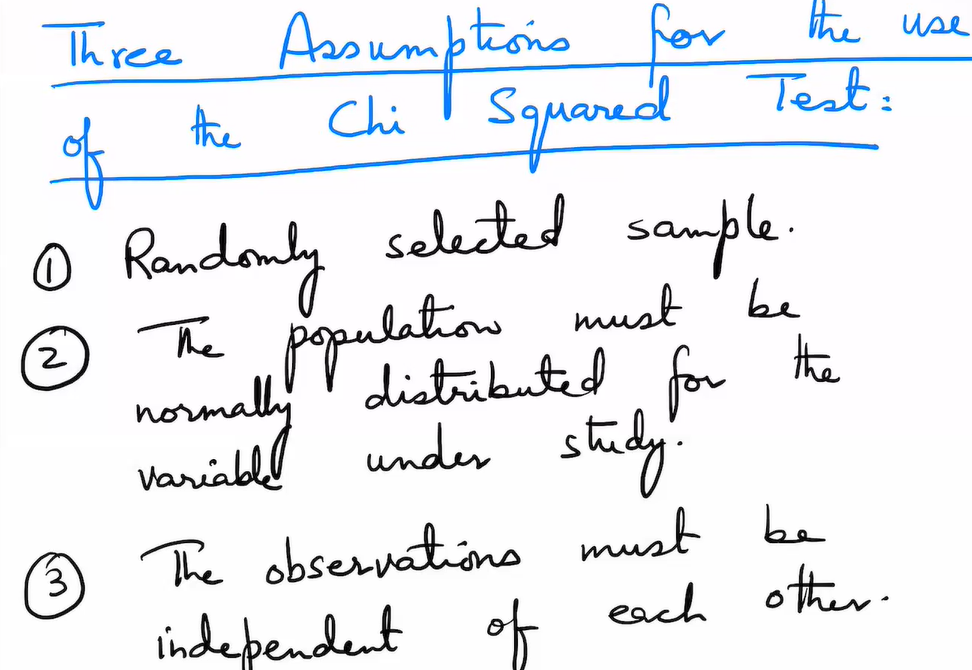 Three Assumptions for the use
of the Chi Squared Test:
① Randomly selected sample.
② The population must be
normally distributed for the
variable under study.
③ The observations must be
independent of each other.